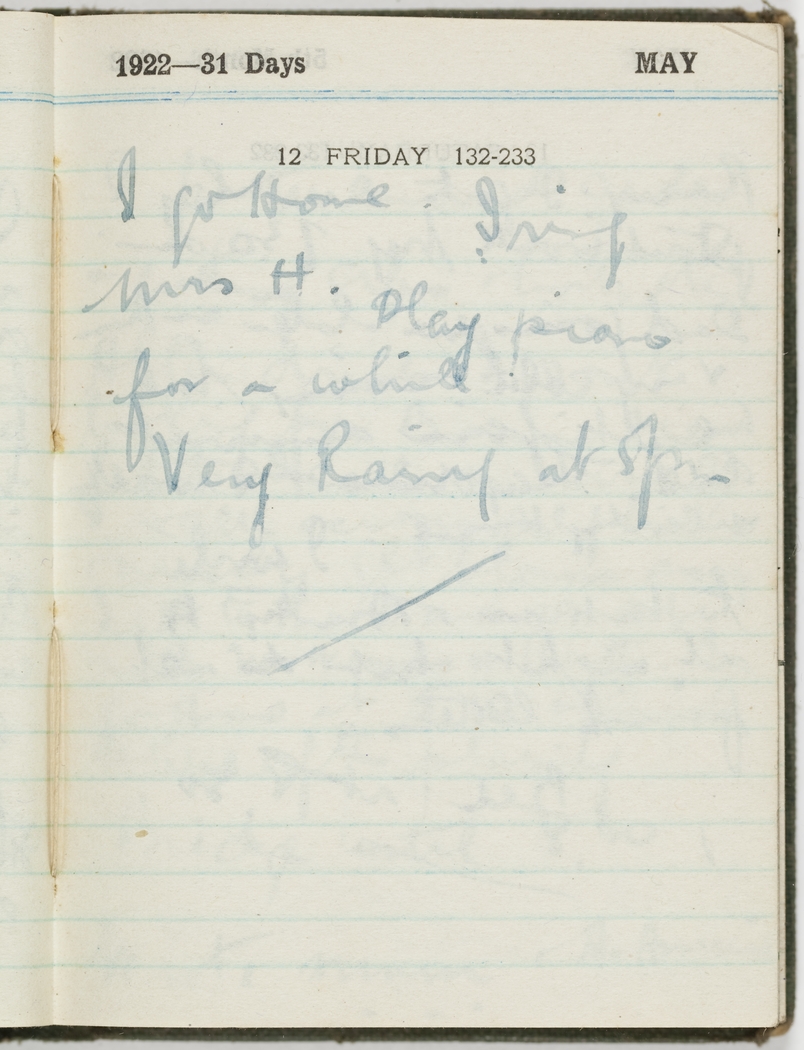 1922—31 Days MAY
12 FRIDAY 132-233
I go Home. I ring
Mrs H. Play piano
for a while.
Very Rainy at 5pm